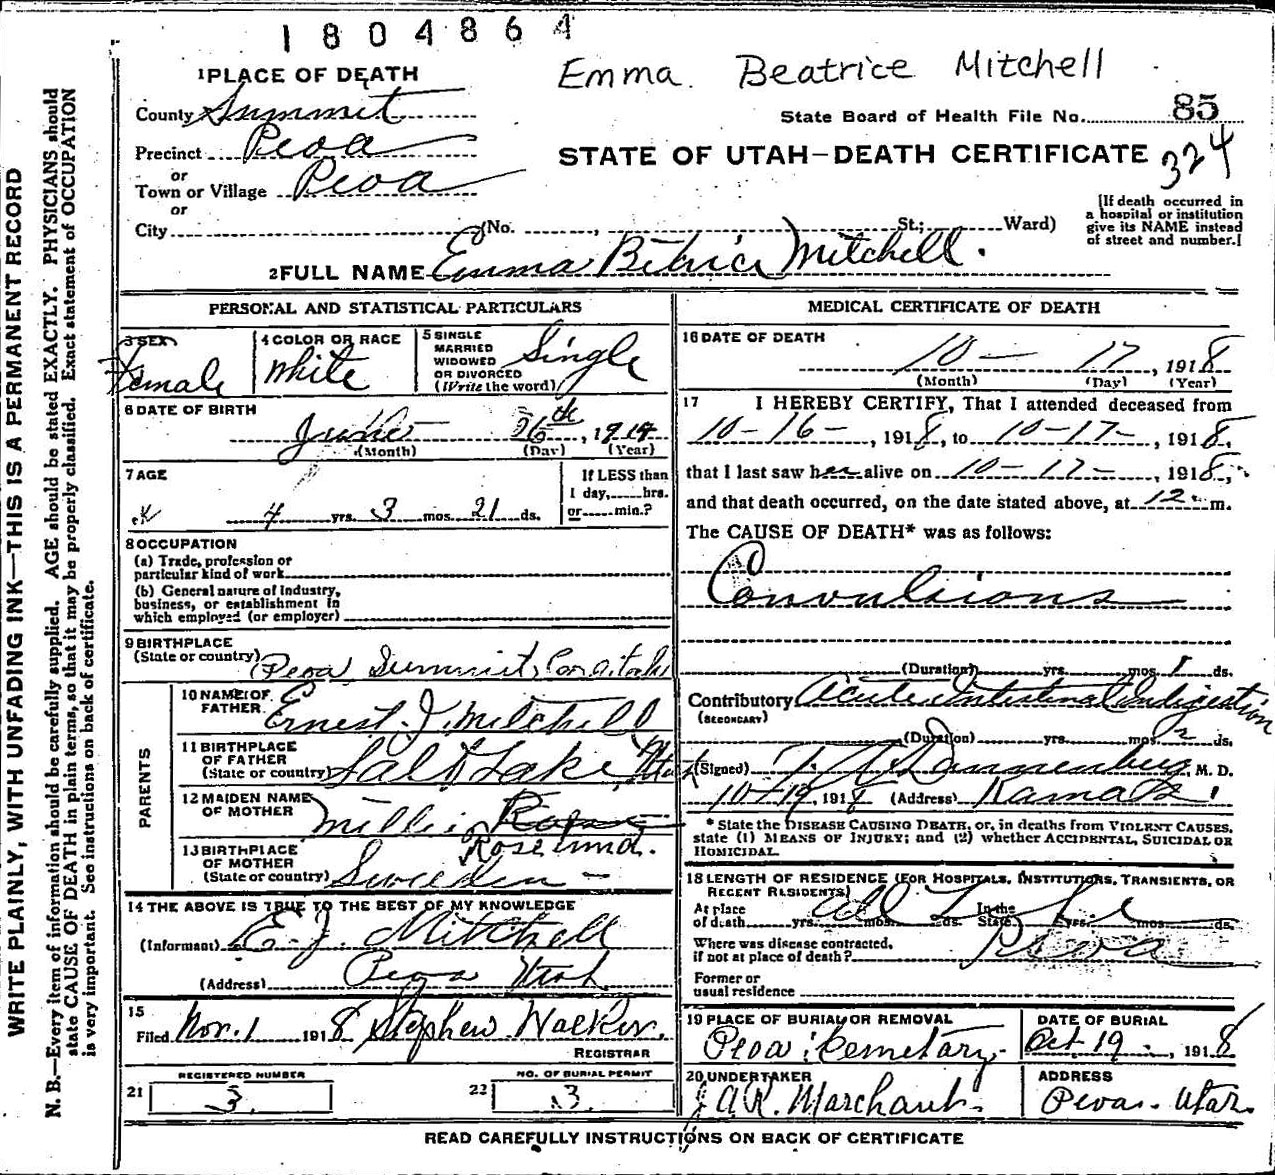 1804864
Emma Beatrice Mitchell
1 PLACE OF DEATH
County Summit
State Board of Health File No. 85
Precinct Peoa
STATE OF UTAH—DEATH CERTIFICATE 324
or
Town or Village Peoa
or
City (No. , St.; Ward)
[If death occurred in
a hospital or institution
give its NAME instead
of street and number.]
2 FULL NAME Emma Bitrice Mitchell.
PERSONAL AND STATISTICAL PARTICULARS
3 SEX
Female
4 COLOR OR RACE
White
5 SINGLE
MARRIED
WIDOWED
OR DIVORCED
(Write the word)
Single
6 DATE OF BIRTH
June 26th, 1914
(Month) (Day) (Year)
7 AGE
4 yrs. 3 mos. 21 ds.
If LESS than
1 day, hrs.
or min.?
8 OCCUPATION
(a) Trade, profession or
particular kind of work
(b) General nature of industry,
business, or establishment in
which employed (or employer)
9 BIRTHPLACE
(State or country) Peoa Summit Co Utah
PARENTS
10 NAME OF
FATHER Ernest J. Mitchell
11 BIRTHPLACE
OF FATHER
(State or country) Salt Lake Utah
12 MAIDEN NAME
OF MOTHER Millie
Roselund.
13 BIRTHPLACE
OF MOTHER
(State or country) Sweeden —
14 THE ABOVE IS TRUE TO THE BEST OF MY KNOWLEDGE
(Informant) E. J. Mitchell
(Address) Peoa Utah
15
Filed Nov. 1 1918 Stephen Walker.
REGISTRAR
REGISTERED NUMBER
21 3
NO. OF BURIAL PERMIT
22 3
MEDICAL CERTIFICATE OF DEATH
16 DATE OF DEATH
10 — 17, 1918
(Month) (Day) (Year)
17 I HEREBY CERTIFY, That I attended deceased from
10-16-, 1918, to 10-17-, 1918,
that I last saw her alive on 10-17-, 1918,
and that death occurred, on the date stated above, at 12 m.
The CAUSE OF DEATH* was as follows:
Convulsions
(Duration) yrs. mos. 1 ds.
Contributory Acute Intestinal Indigestion
(SECONDARY)
(Duration) yrs. mos. 2 ds.
(Signed) Dannenburg, M. D.
10-19, 1918 (Address) Kamas
* State the DISEASE CAUSING DEATH, or, in deaths from VIOLENT CAUSES,
state (1) MEANS OF INJURY; and (2) whether ACCIDENTAL, SUICIDAL OR
HOMICIDAL.
18 LENGTH OF RESIDENCE (FOR HOSPITALS, INSTITUTIONS, TRANSIENTS, OR
RECENT RESIDENTS)
At place
of death yrs. mos. ds. In the
State yrs. mos. ds.
All Life
Where was disease contracted,
if not at place of death? Peoa
Former or
usual residence
19 PLACE OF BURIAL OR REMOVAL
Peoa Cemetary
DATE OF BURIAL
Oct 19, 1918
20 UNDERTAKER
J A R. Marchant.
ADDRESS
Peoa. Utah.
READ CAREFULLY INSTRUCTIONS ON BACK OF CERTIFICATE
WRITE PLAINLY, WITH UNFADING INK—THIS IS A PERMANENT RECORD
N. B.—Every item of information should be carefully supplied. AGE should be stated EXACTLY. PHYSICIANS should
state CAUSE OF DEATH in plain terms, so that it may be properly classified. Exact statement of OCCUPATION
is very important. See instructions on back of certificate.